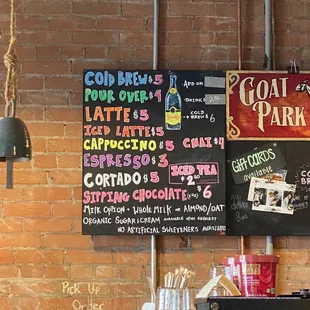 COLD BREW $5
POUR OVER $4
LATTE $5
ICED LATTE $5
CAPPUCCINO $5
CHAI $4
ESPRESSO $3
CORTADO $5
ICED TEA
$2
SIPPING CHOCOLATE $6
MILK OPTION - WHOLE MILK OR ALMOND/OAT
ORGANIC SUGAR & CREAM AVAILABLE UPON REQUEST
NO ARTIFICIAL SWEETENERS AVAILABLE
ADD ON
DRINK
COLD
BREW
$6
GOAT
PARK
Gift CARDS
Available
Pick Up
Order